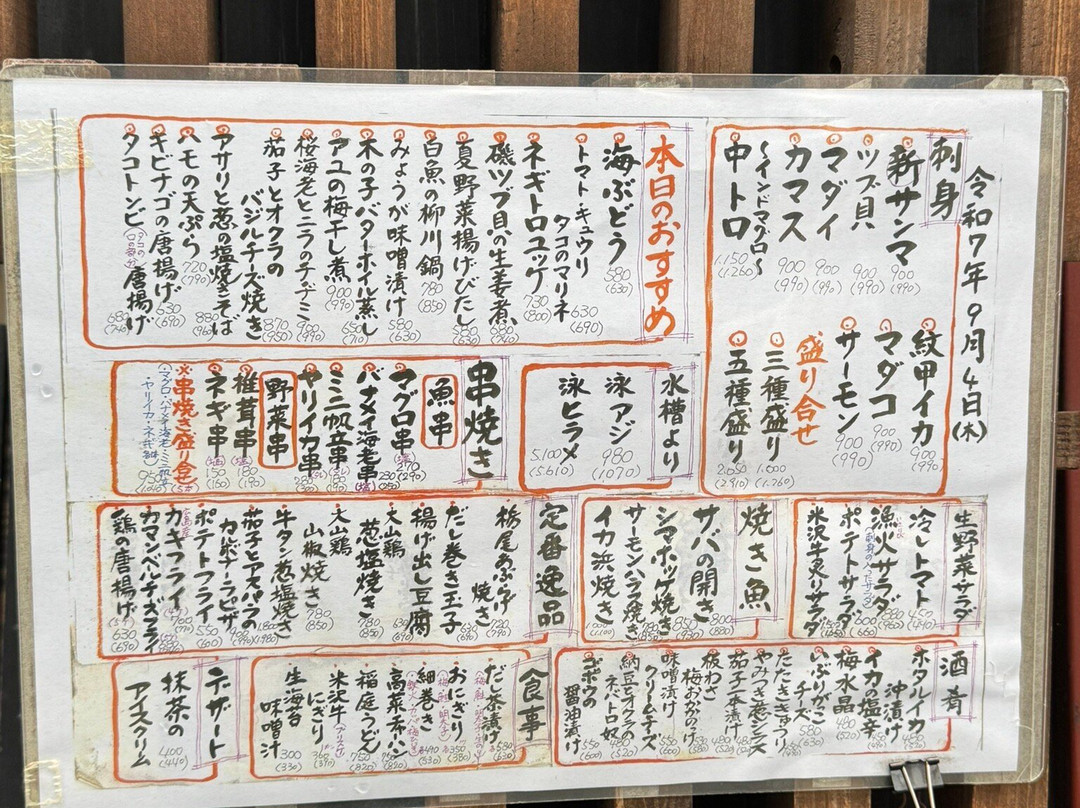 令和7年9月4日(木)
刺身
新サンマ 900 (990)
ツブ貝 900 (990)
マダイ 900 (990)
カマス 900 (990)
中トロ 1.150 (1.260)
〜インドマグロ〜
紋甲イカ 900 (990)
マダコ 900 (990)
サーモン 900 (990)
盛り合せ
三種盛り 1.600 (1.760)
五種盛り
本日のおすすめ
海ぶどう 580 (630)
トマト・キュウリ
タコのマリネ 630 (690)
ネギトロユッケ 730 (800)
磯ツブ貝の生姜煮 680 (740)
夏野菜揚げびたし 580 (630)
白魚の柳川鍋 780 (850)
みょうが味噌漬け 580 (630)
木の子バターホイル蒸し 650 (710)
アユの梅干し煮 900 (990)
桜海老とニラのチヂミ 900 (990)
茄子とオクラの
バジルチーズ焼き 870 (950)
アサリと葱の塩焼そば 880 (960)
ハモの天ぷら 720 (790)
キビナゴの唐揚げ 630 (690)
タコトンビ(タコの口の部分)唐揚げ 680 (740)
水槽より
泳アジ 980 (1.070)
泳ヒラメ 5.100 (5.610)
串焼き
魚串
マグロ串 270 (290)
バナメイ海老串 230 (250)
ミニ帆立串
ヤリイカ串 280
野菜串
椎茸串 180 (190)
ネギ串 150 (160)
※串焼き盛り合せ 950
・マグロ・バナメイ海老・ミニ帆立
・ヤリイカ・ネギ
生野菜サラダ
冷しトマト 450 (490)
漁火サラダ 880 (960)
ポテトサラダ 600 (660)
米沢牛炙りサラダ
焼き魚
サバの開き 800 (880)
シマホッケ焼き 850 (930)
サーモンハラス焼き 780 (850)
イカ浜焼き 1.000 (1.100)
定番逸品
栃尾のあぶらげ
焼き 720 (790)
だし巻き玉子 630 (690)
揚げ出し豆腐 630 (690)
大山鶏
葱塩焼き 780 (850)
大山鶏
山椒焼き 780 (850)
牛タン葱塩焼き 1.800 (1.980)
茄子とアスパラの
カルボナーラピザ 900 (990)
ポテトフライ 550 (600)
カキフライ
カマンベールチーズフライ
鶏の唐揚げ 630 (690)
酒肴
ホタルイカ
沖漬け
イカの塩辛
梅水晶 480 (520)
いぶりがっこ
チーズ 580 (630)
たたききゅうり
やみつき葱メンマ
茄子一本漬け
板わさ
梅おかのけ
味噌漬け
クリームチーズ
納豆とオクラの
ネバトロ奴
ゴボウの
醤油漬け 550 (600)
食事
だし茶漬け
おにぎり 350 (380)
細巻き
高菜チャーハン
稲庭うどん 750 (820)
米沢牛
にぎり
生海苔
味噌汁 300 (330)
デザート
抹茶の
アイスクリーム 400 (440)